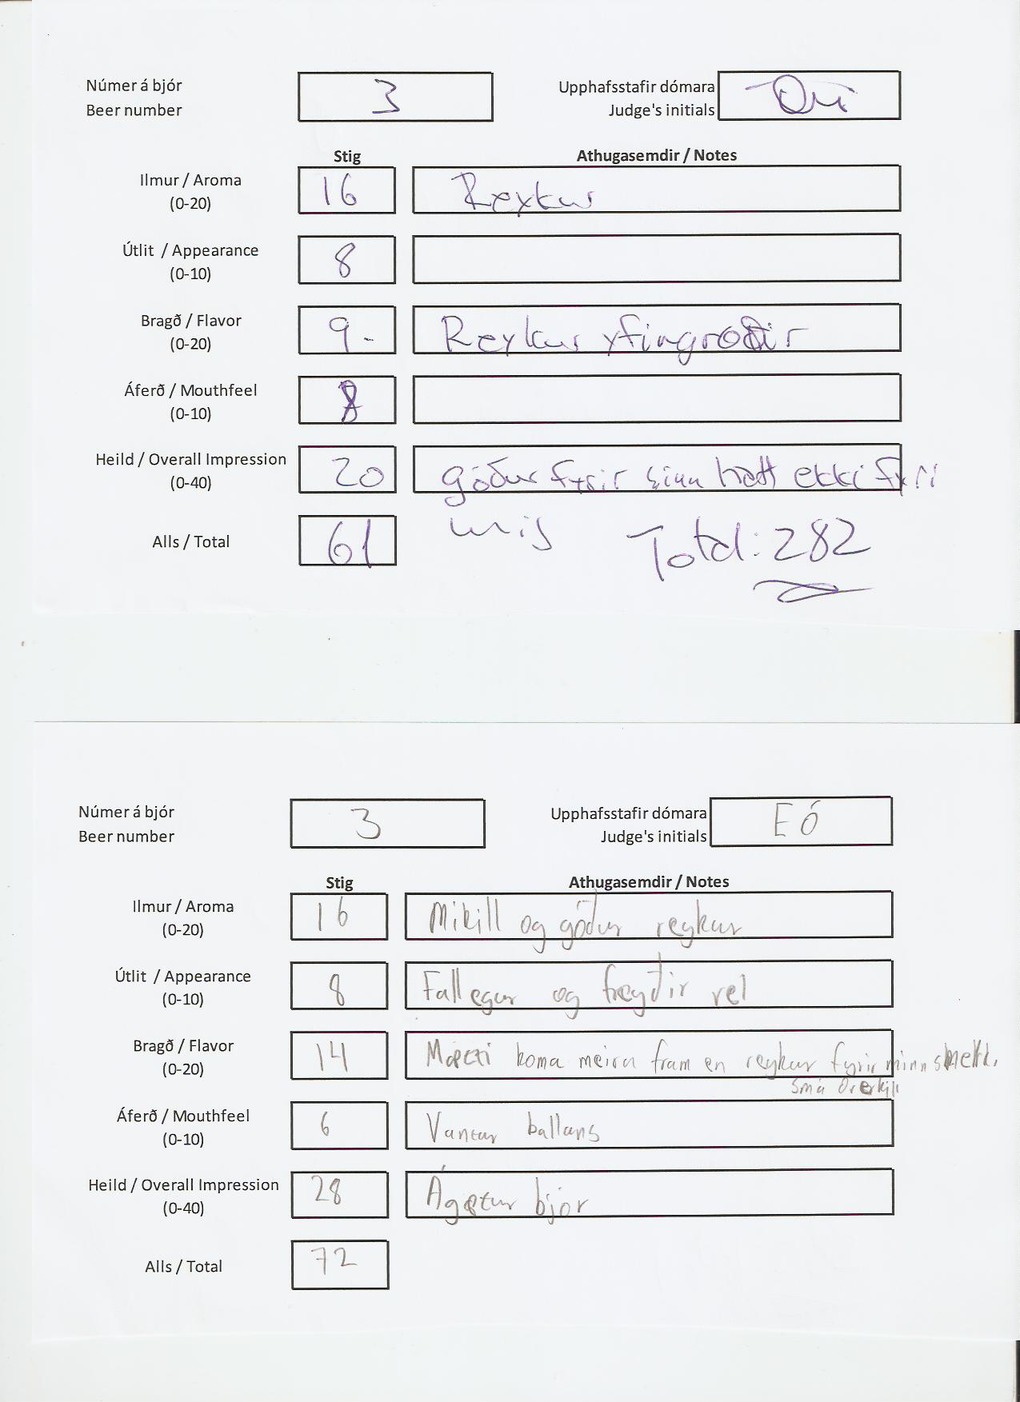 Númer á bjór
Beer number
3
Upphafsstafir dómara
Judge's initials
Stig
Athugasemdir / Notes
Ilmur / Aroma
(0-20)
16
Reykur
Útlit / Appearance
(0-10)
8
Bragð / Flavor
(0-20)
9-
Reykur yfirgnæfir
Áferð / Mouthfeel
(0-10)
8
Heild / Overall Impression
(0-40)
20
góður fyrir sinn hatt ekki fyri
mig
Alls / Total
61
Total: 282
Númer á bjór
Beer number
3
Upphafsstafir dómara
Judge's initials
EÓ
Stig
Athugasemdir / Notes
Ilmur / Aroma
(0-20)
16
Mikill og góður reykur
Útlit / Appearance
(0-10)
8
Fallegur og freyðir vel
Bragð / Flavor
(0-20)
14
Mætti koma meira fram en reykur fyrir minn smekk.
smá overkill
Áferð / Mouthfeel
(0-10)
6
Vantar ballans
Heild / Overall Impression
(0-40)
28
Ágætur bjór
Alls / Total
72